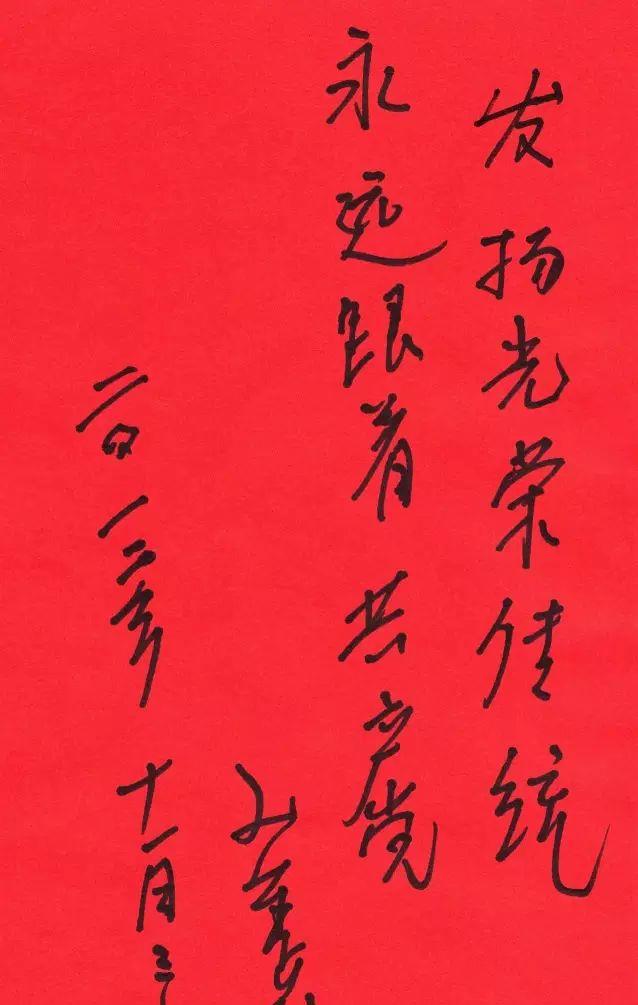 发扬光荣传统
永远跟着共产党
二〇一二年十一月三